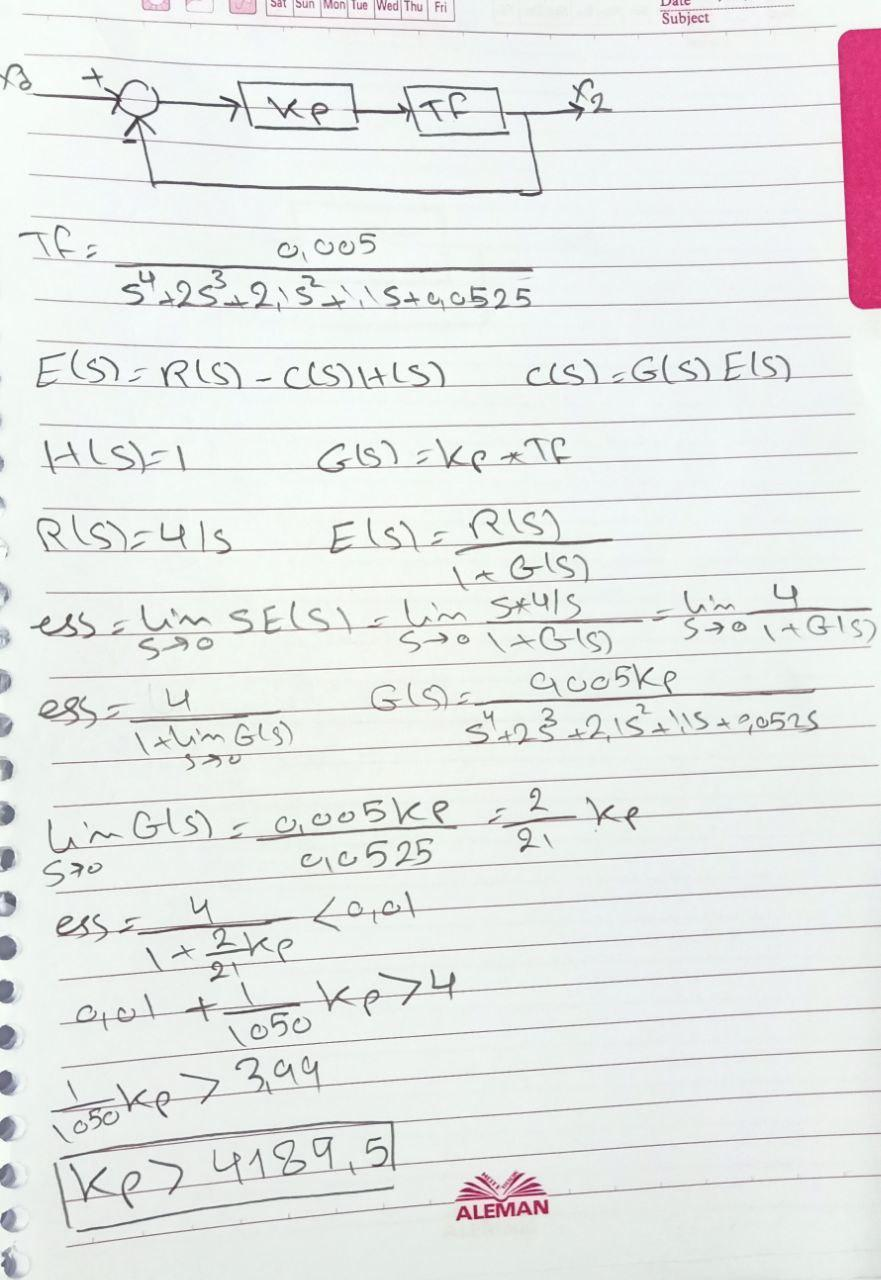 Sat Sun Mon Tue Wed Thu Fri
Date
Subject
x3 + Kp TF x2
-
TF = 0,005 / s^4+2s^3+2,1s^2+1,1s+0,0525
E(s) = R(s) - C(s)H(s) C(s) = G(s) E(s)
H(s)=1 G(s) = Kp * TF
R(s) = 4/s E(s) = R(s) / 1+G(s)
ess = lim s→0 SE(s) = lim s→0 s*4/s / 1+G(s) = lim s→0 4 / 1+G(s)
ess = 4 / 1+lim s→0 G(s) G(s) = 0,005Kp / s^4+2s^3+2,1s^2+1,1s+0,0525
lim s→0 G(s) = 0,005Kp / 0,0525 = 2/21 Kp
ess = 4 / 1+2/21 Kp < 0,01
0,01 + 1/1050 Kp > 4
1/1050 Kp > 3,99
Kp > 4189,5
ALEMAN